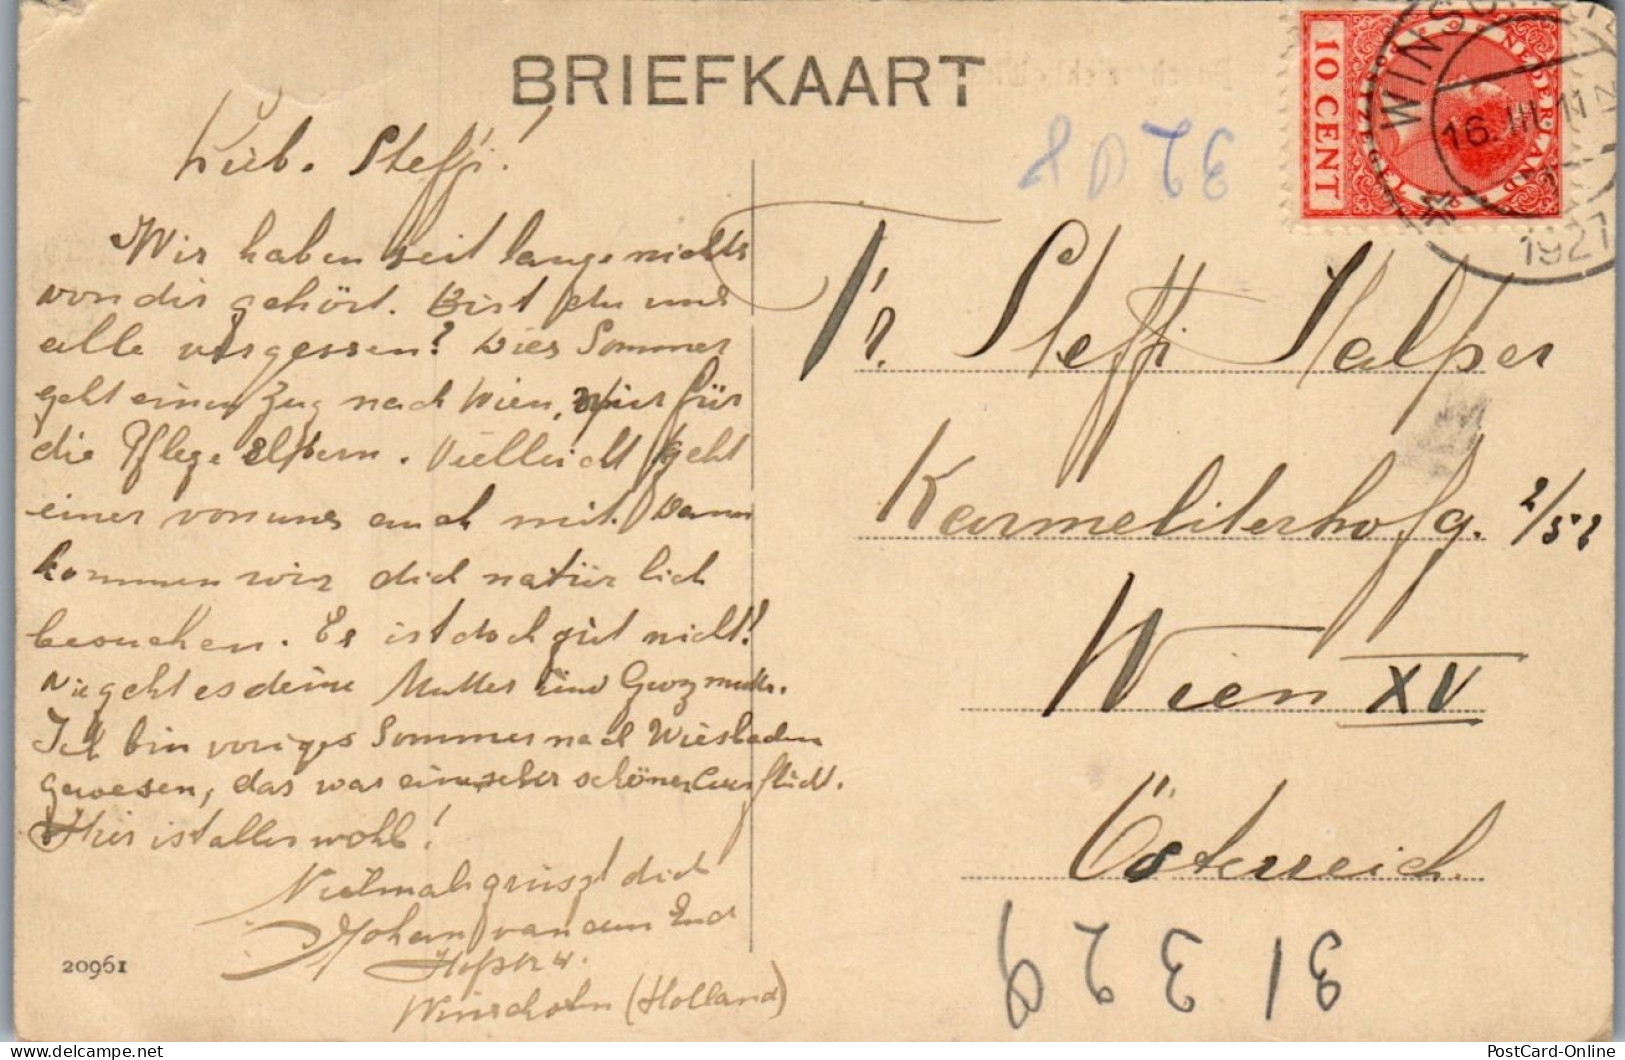 BRIEFKAART
Lieb. Steffi!
Wir haben seit lange nichts
von dir gehört. Bist du uns
alle vergessen? Dies Sommer
geht einen Zug nach Wien, hier für
die Pflege eltern. Vielleicht geht
einer von uns auch mit. Dann
kommen wir dich natürlich
besuchen. Es ist doch gut nicht!
Wie geht es deine Mutter und Groszmutter.
Ich bin voriges Sommer nach Wiesbaden
gewesen, das war ein sehr schöner Ausflucht.
Hier ist alles wohl!
Vielmals grüszt dich
Johan van den End
Winschoten (Holland)
20961
3208
NEDERLAND
10 CENT
POSTZEGEL
WINSCHOTEN
16.III.11
1927
Fr. Steffi Halper
Karmeliterhofg. 2/52
Wien XV
Österreich.
31329
PostCard-Online